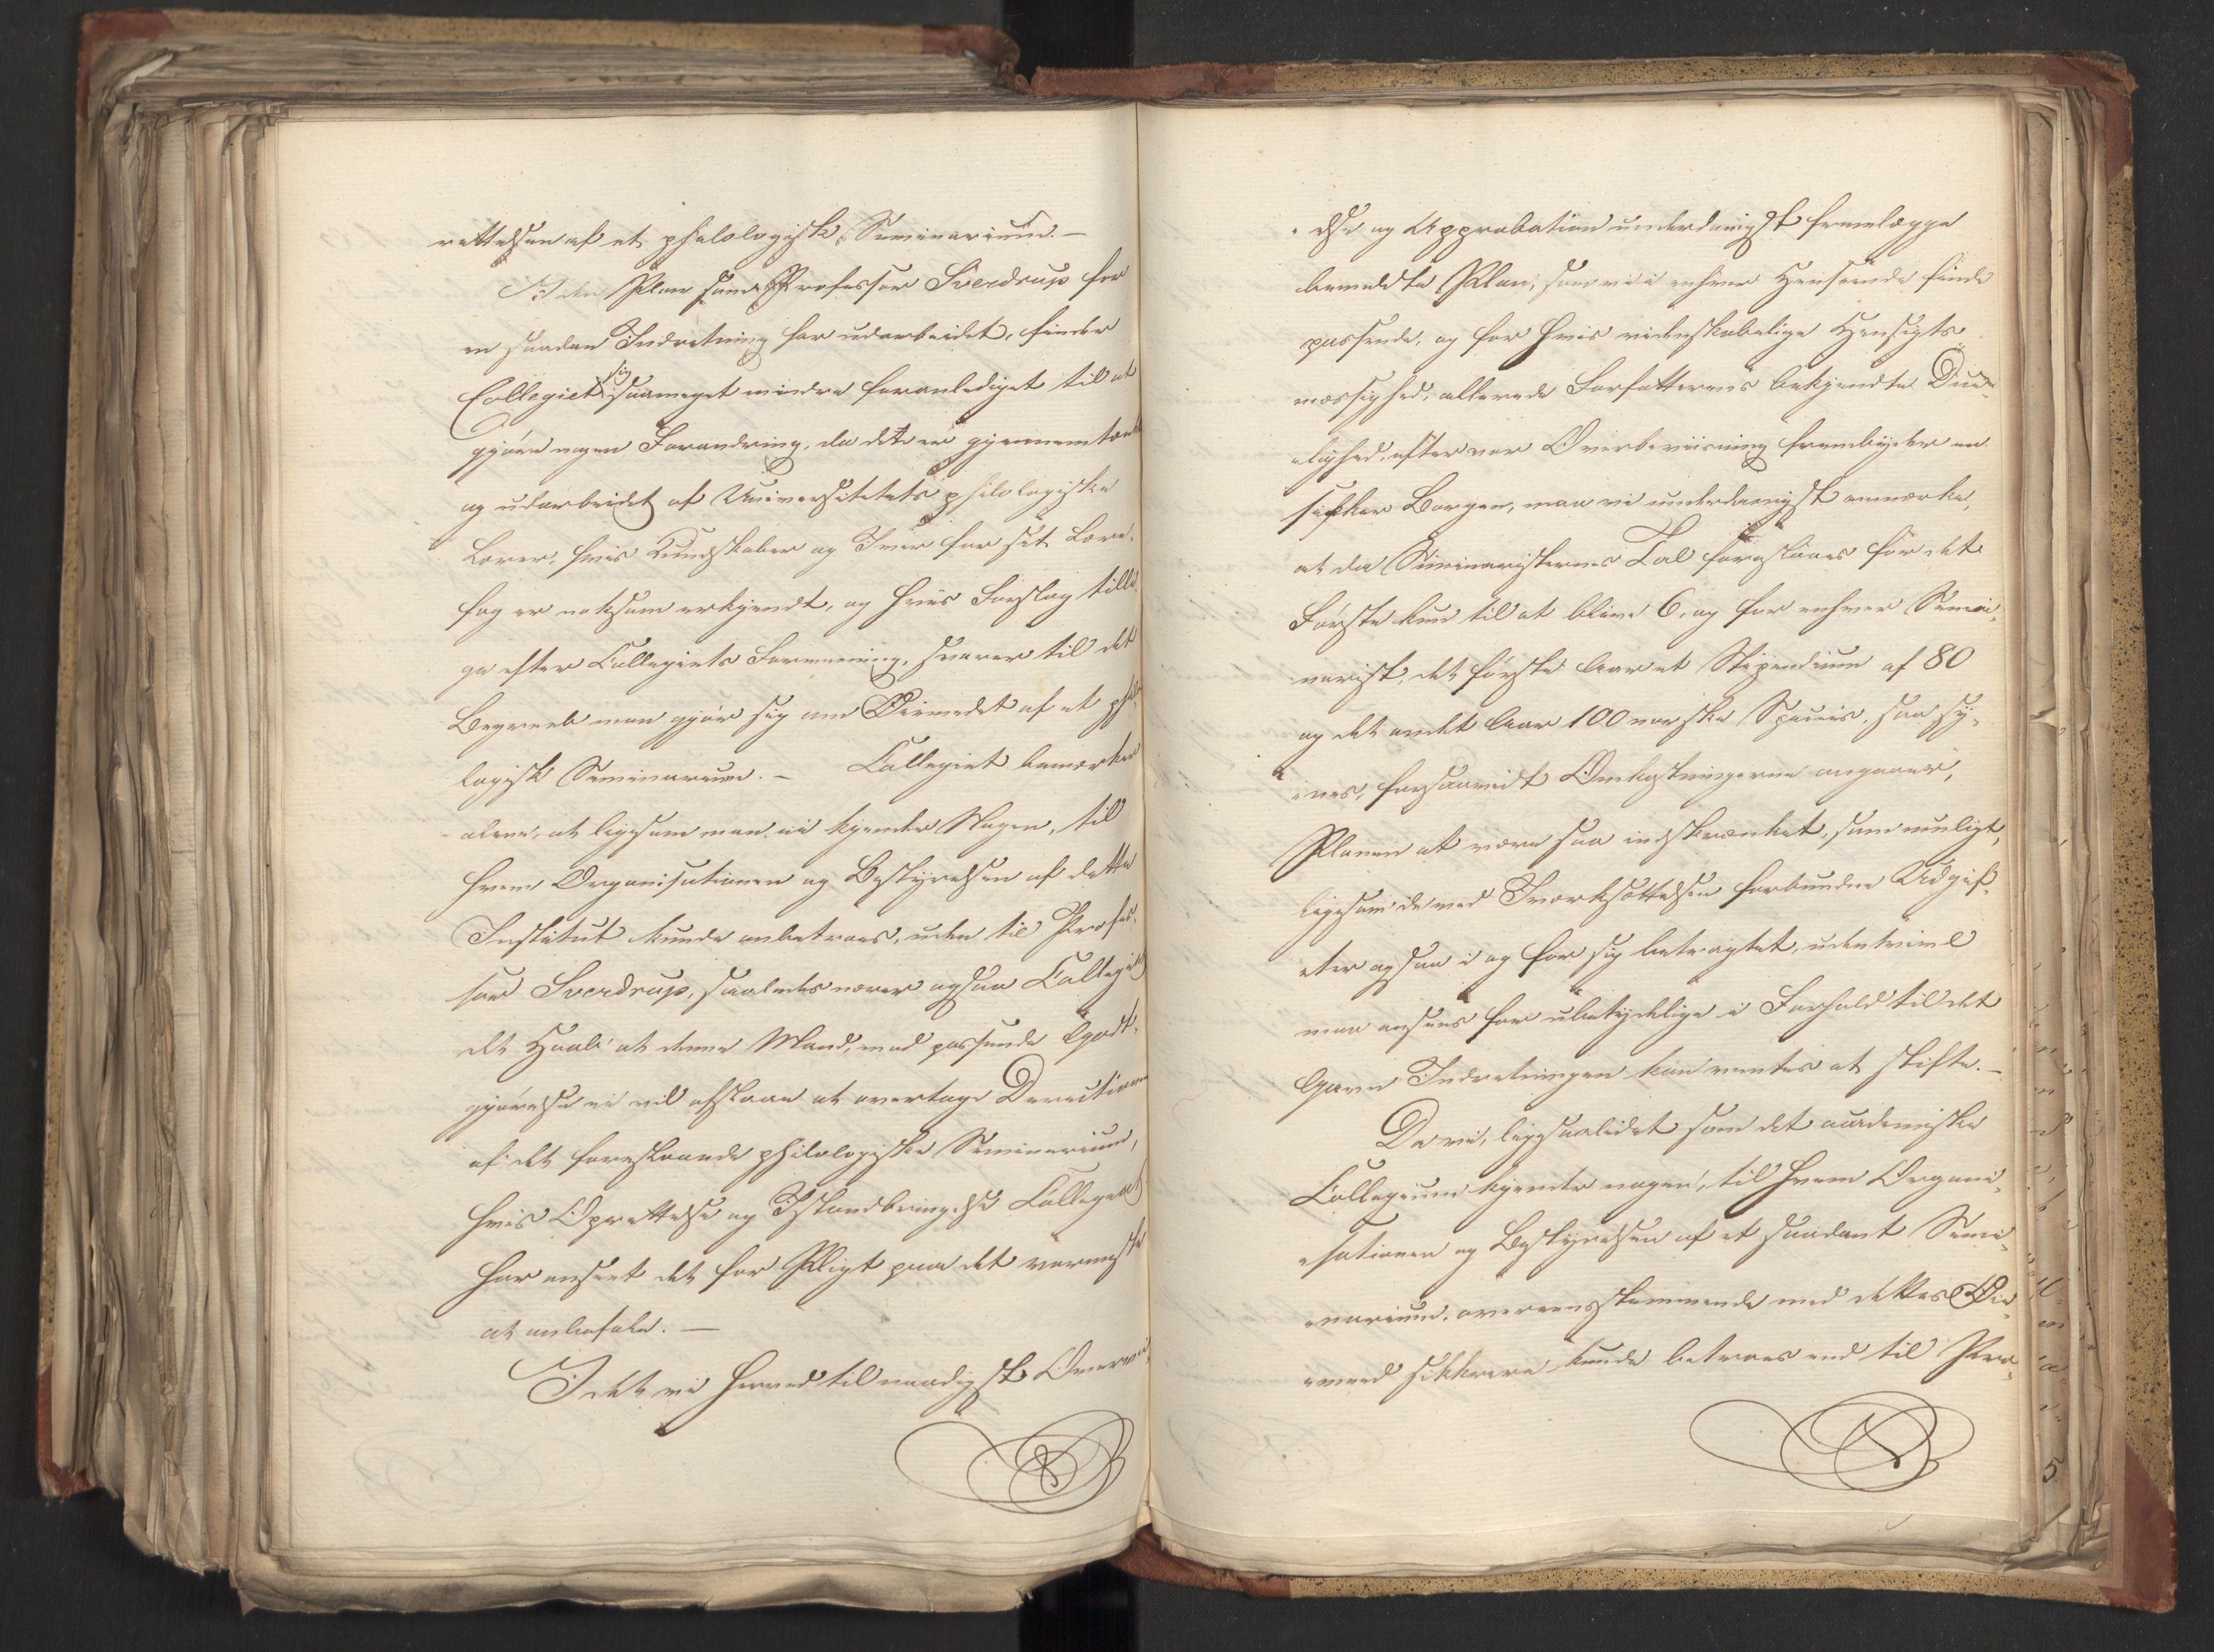 rettelsen af et phalologiske Seminarium. —
I den Plan som Professor Sverdrup for
en saadan Indretning har udarbeidet, finder
Collegiet sig saameget mindre foranlediget til at
gjøre nogen Forandring, da det er gjennemtænkt
og udarbeidet af Universitetets philologiske
Lærer, hvis Kundskaber og Iver for sit Lære-
fag er noksom erkjendt, og hvis Forslag tilli-
ge efter Collegiets Formening, svarer til det
Begreeb man gjør sig om Øiemedet af et philo-
logisk Seminarium. — Collegiet bemærker
alene, at ligesom man ei kjender Nogen, til
hvem Organisationen og Bestyrelsen af dette
Institut kunde anbetroes, uden til Profes-
sor Sverdrup, saaledes nærer ogsaa Collegiet
det Haab at denne Mand, mod passende Godt-
gjørelse ei vil afslaae at overtage Directionen
af det forestaaende philologiske Seminarium,
hvis Oprettelse og Istandbringelse Collegiet
har anseet det for Pligt paa det varmeste
at anbefale. —
Idet vi herved til naadigste Overvei-
else og Approbation underdanigst fremlægge
bemeldte Plan, som vi i enhver Henseende finde
passende, og for hvis videnskabelige Hensigts-
mæssighed, allerede Forfatterens bekjendte Due-
lighed, efter vor Overbeviisning frembyder en
sikker Borgen, maa vi underdanigst anmærke,
at da Seminaristernes Tal foreslaaes for det
Første kun til at blive 6, og for enhver Semi-
narist, det første Aar et Stipendium af 80
og det andet Aar 100 norske Species, saa sy-
nes, forsaavidt Omkostningerne angaaer,
Planen at være saa indskrænket, som muligt,
ligesom de med Iværksættelsen forbundne Udgif-
ter ogsaa i og for sig betragtet, udentvivl
maa ansees for ubetydelige i Forhold til det
Gavn Indretningen kan ventes at stifte. —
Da vi, ligesaalidet som det academiske
Collegium kjender nogen, til hvem Organi-
sationen og Bestyrelsen af et saadant Semi-
narium, overeensstemmende med dettes Øie-
meed sikkrere kunde betroes end til Pro-